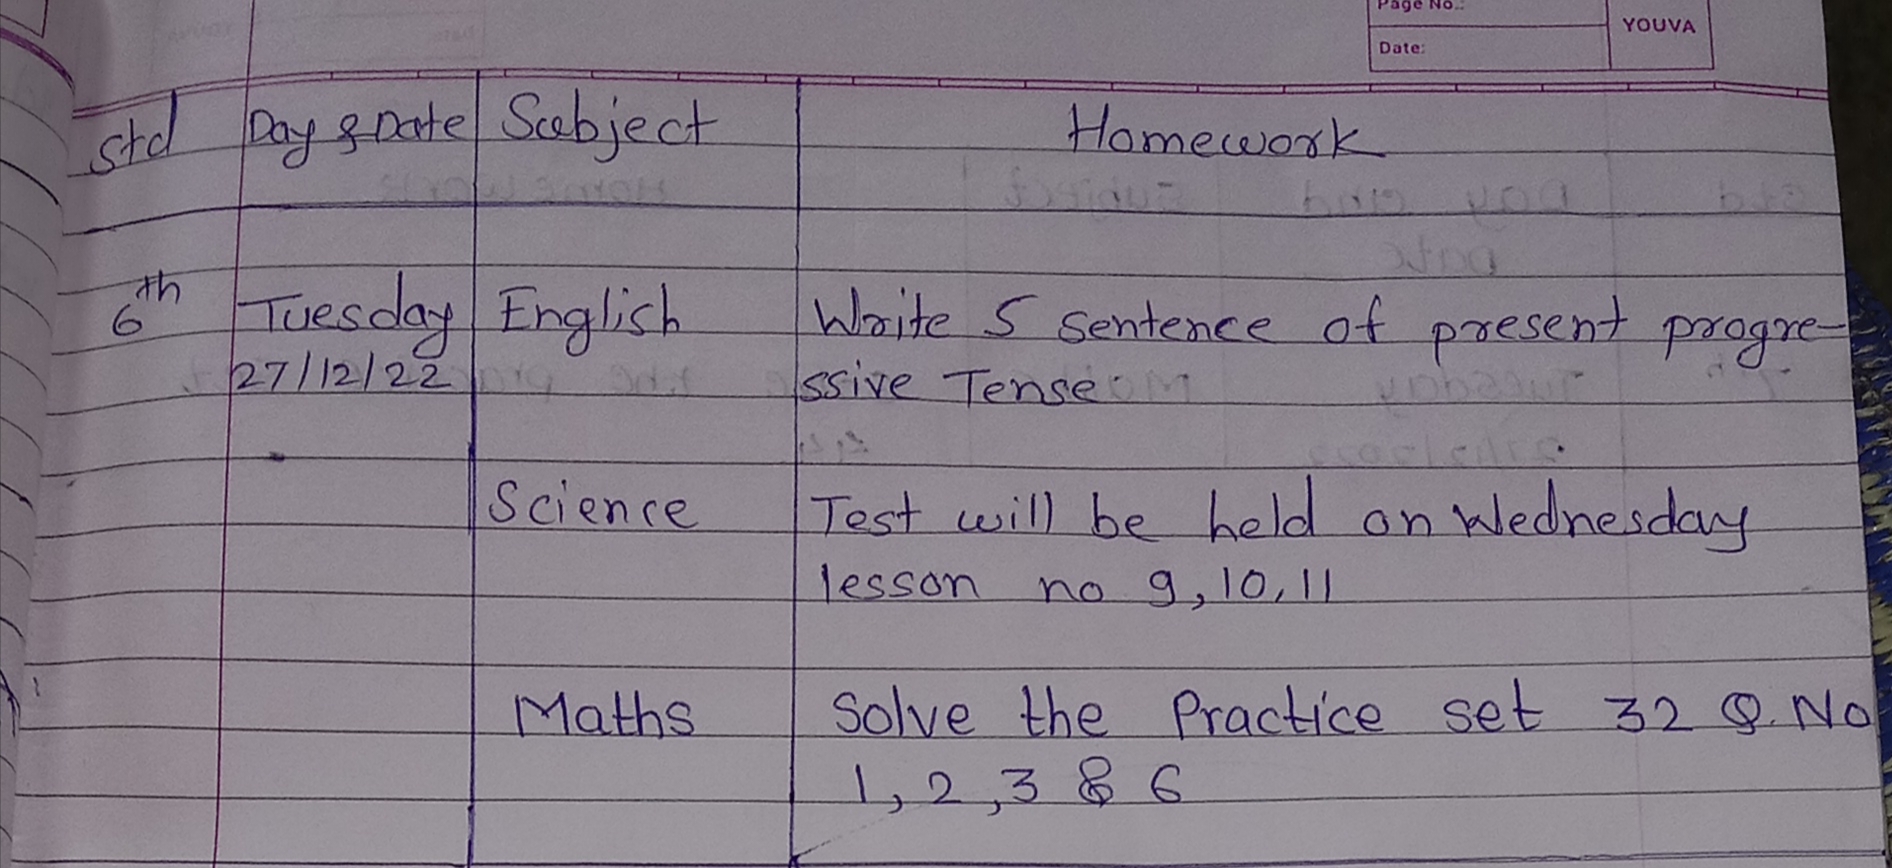 Page No.:
Date:
YOUVA
Std Day & Date Subject Homework
6th Tuesday English Write 5 sentence of present progre-
27/12/22 ssive Tense
Science Test will be held on Wednesday
lesson no 9, 10, 11
Maths Solve the Practice set 32 Q. No
1, 2, 3 & 6